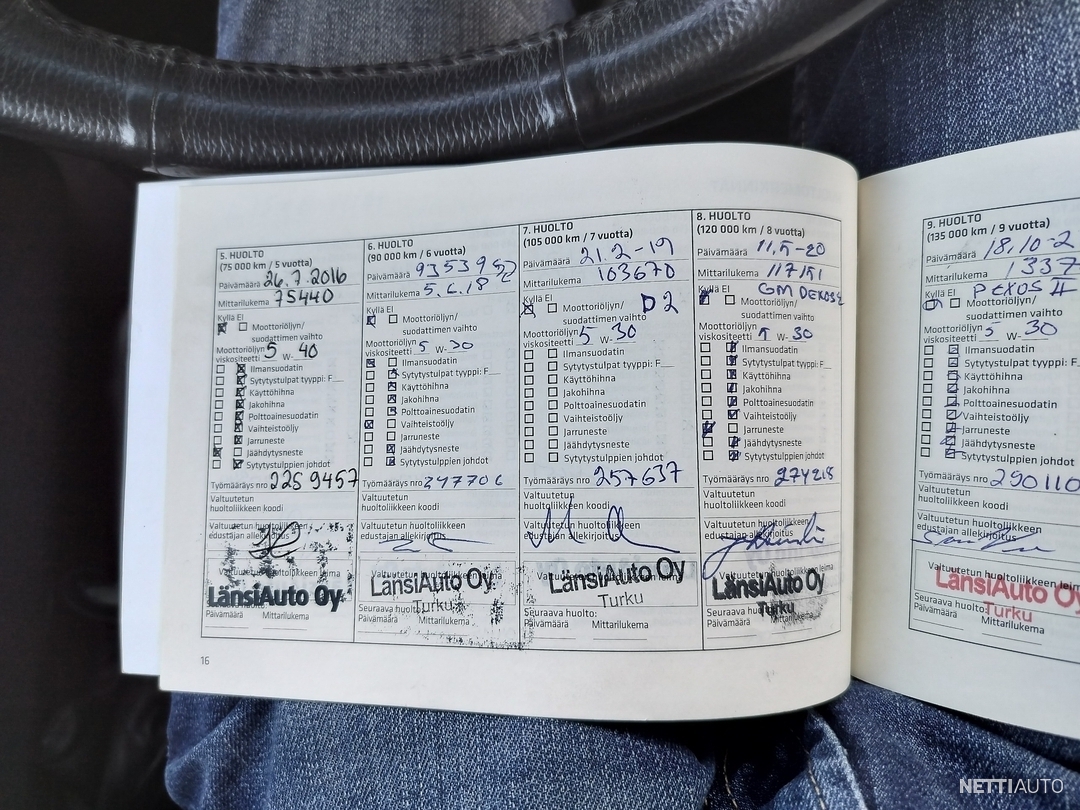 5. HUOLTO
(75 000 km / 5 vuotta)
Päivämäärä 26.7.2016
Mittarilukema 75440
Kyllä Ei
Moottoriöljyn/
suodattimen vaihto
Moottoriöljyn
viskositeetti 5 W- 40
Ilmansuodatin
Sytytystulpat tyyppi: F__
Käyttöhihna
Jakohihna
Polttoainesuodatin
Vaihteistoöljy
Jarruneste
Jäähdytysneste
Sytytystulppien johdot
Työmääräys nro 2259457
Valtuutetun
huoltoliikkeen koodi
Valtuutetun huoltoliikkeen
edustajan allekirjoitus
Valtuutetun huoltoliikkeen leima
LänsiAuto Oy
Seuraava huolto:
Päivämäärä Mittarilukema
6. HUOLTO
(90 000 km / 6 vuotta)
Päivämäärä
Mittarilukema 5.6.18
Kyllä Ei
Moottoriöljyn/
suodattimen vaihto
Moottoriöljyn
viskositeetti 5 W- 30
Ilmansuodatin
Sytytystulpat tyyppi: F__
Käyttöhihna
Jakohihna
Polttoainesuodatin
Vaihteistoöljy
Jarruneste
Jäähdytysneste
Sytytystulppien johdot
Työmääräys nro 247706
Valtuutetun
huoltoliikkeen koodi
Valtuutetun huoltoliikkeen
edustajan allekirjoitus
Valtuutetun huoltoliikkeen leima
LänsiAuto Oy
Turku
Seuraava huolto:
Päivämäärä Mittarilukema
7. HUOLTO
(105 000 km / 7 vuotta)
Päivämäärä 21.2-19
Mittarilukema 103670
Kyllä Ei
D2
Moottoriöljyn/
suodattimen vaihto
Moottoriöljyn
viskositeetti 5 W- 30
Ilmansuodatin
Sytytystulpat tyyppi: F__
Käyttöhihna
Jakohihna
Polttoainesuodatin
Vaihteistoöljy
Jarruneste
Jäähdytysneste
Sytytystulppien johdot
Työmääräys nro 257637
Valtuutetun
huoltoliikkeen koodi
Valtuutetun huoltoliikkeen
edustajan allekirjoitus
Valtuutetun huoltoliikkeen leima
LänsiAuto Oy
Turku
Seuraava huolto:
Päivämäärä Mittarilukema
8. HUOLTO
(120 000 km / 8 vuotta)
Päivämäärä 11.5-20
Mittarilukema 117151
Kyllä Ei GM DEXOS2
Moottoriöljyn/
suodattimen vaihto
Moottoriöljyn
viskositeetti 5 W- 30
Ilmansuodatin
Sytytystulpat tyyppi: F__
Käyttöhihna
Jakohihna
Polttoainesuodatin
Vaihteistoöljy
Jarruneste
Jäähdytysneste
Sytytystulppien johdot
Työmääräys nro 274218
Valtuutetun
huoltoliikkeen koodi
Valtuutetun huoltoliikkeen
edustajan allekirjoitus
Valtuutetun huoltoliikkeen leima
LänsiAuto Oy
Turku
Seuraava huolto:
Päivämäärä Mittarilukema
16
9. HUOLTO
(135 000 km / 9 vuotta)
Päivämäärä 18.10-2
Mittarilukema 1337
Kyllä Ei DEXOS II
Moottoriöljyn/
suodattimen vaihto
Moottoriöljyn
viskositeetti 5 W- 30
Ilmansuodatin
Sytytystulpat tyyppi: F__
Käyttöhihna
Jakohihna
Polttoainesuodatin
Vaihteistoöljy
Jarruneste
Jäähdytysneste
Sytytystulppien johdot
Työmääräys nro 290110
Valtuutetun
huoltoliikkeen koodi
Valtuutetun huoltoliikkeen
edustajan allekirjoitus
Valtuutetun huoltoliikkeen leima
LänsiAuto Oy
Turku
Seuraava huolto:
Päivämäärä Mittarilukema
NETTIAUTO